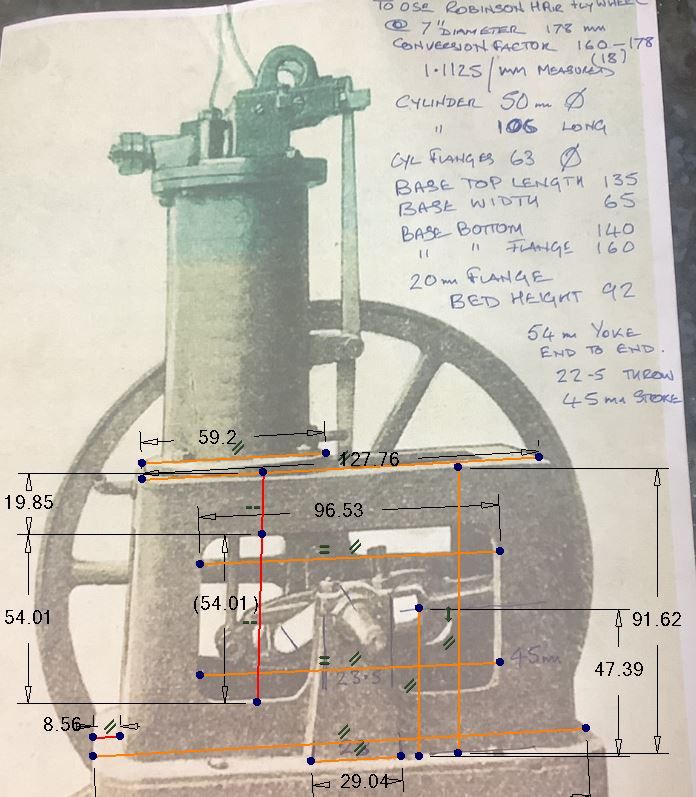 TO USE ROBINSON HAIR FLYWHEEL
@ 7" DIAMETER 178 mm
CONVERSION FACTOR 160-178
(18)
1.1125/mm MEASURED
CYLINDER 50mm Ø
" 106 LONG
CYL FLANGES 63 Ø
BASE TOP LENGTH 135
BASE WIDTH 65
BASE BOTTOM 140
" " FLANGE 160
20mm FLANGE
BED HEIGHT 92
54 m YOKE
END TO END.
22-5 THROW
45mm STOKE
59.2
127.76
19.85
96.53
54.01
(54.01)
91.62
47.39
45m
23.5
8.56
29.04